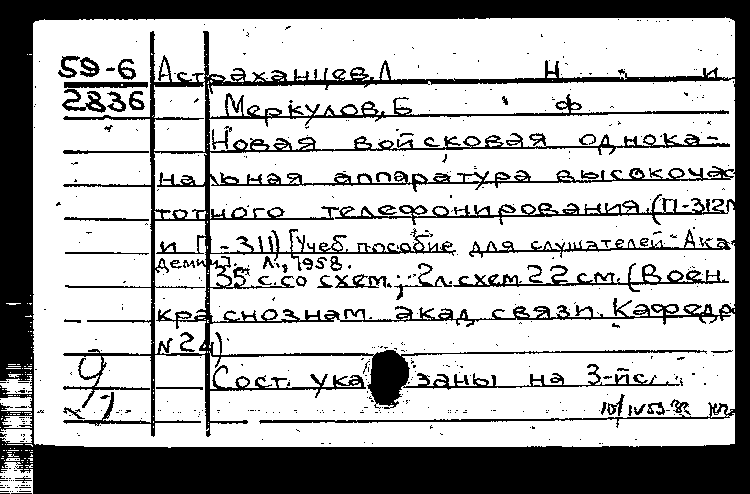 59-6 Астраханцев, Л Н и
2836 Меркулов, Б Ф
Новая войсковая однока-
нальная аппаратура высокочас
тотного телефонирования. (П-312М
и П-311) [Учеб. пособие для слушателей Ака
демии]. Л., 1958.
35 с. со схем.; 2 л. схем 22 см. (Воен.
краснознам. акад. связи. Кафедра
N 24)
Сост. указаны на 3-й с.